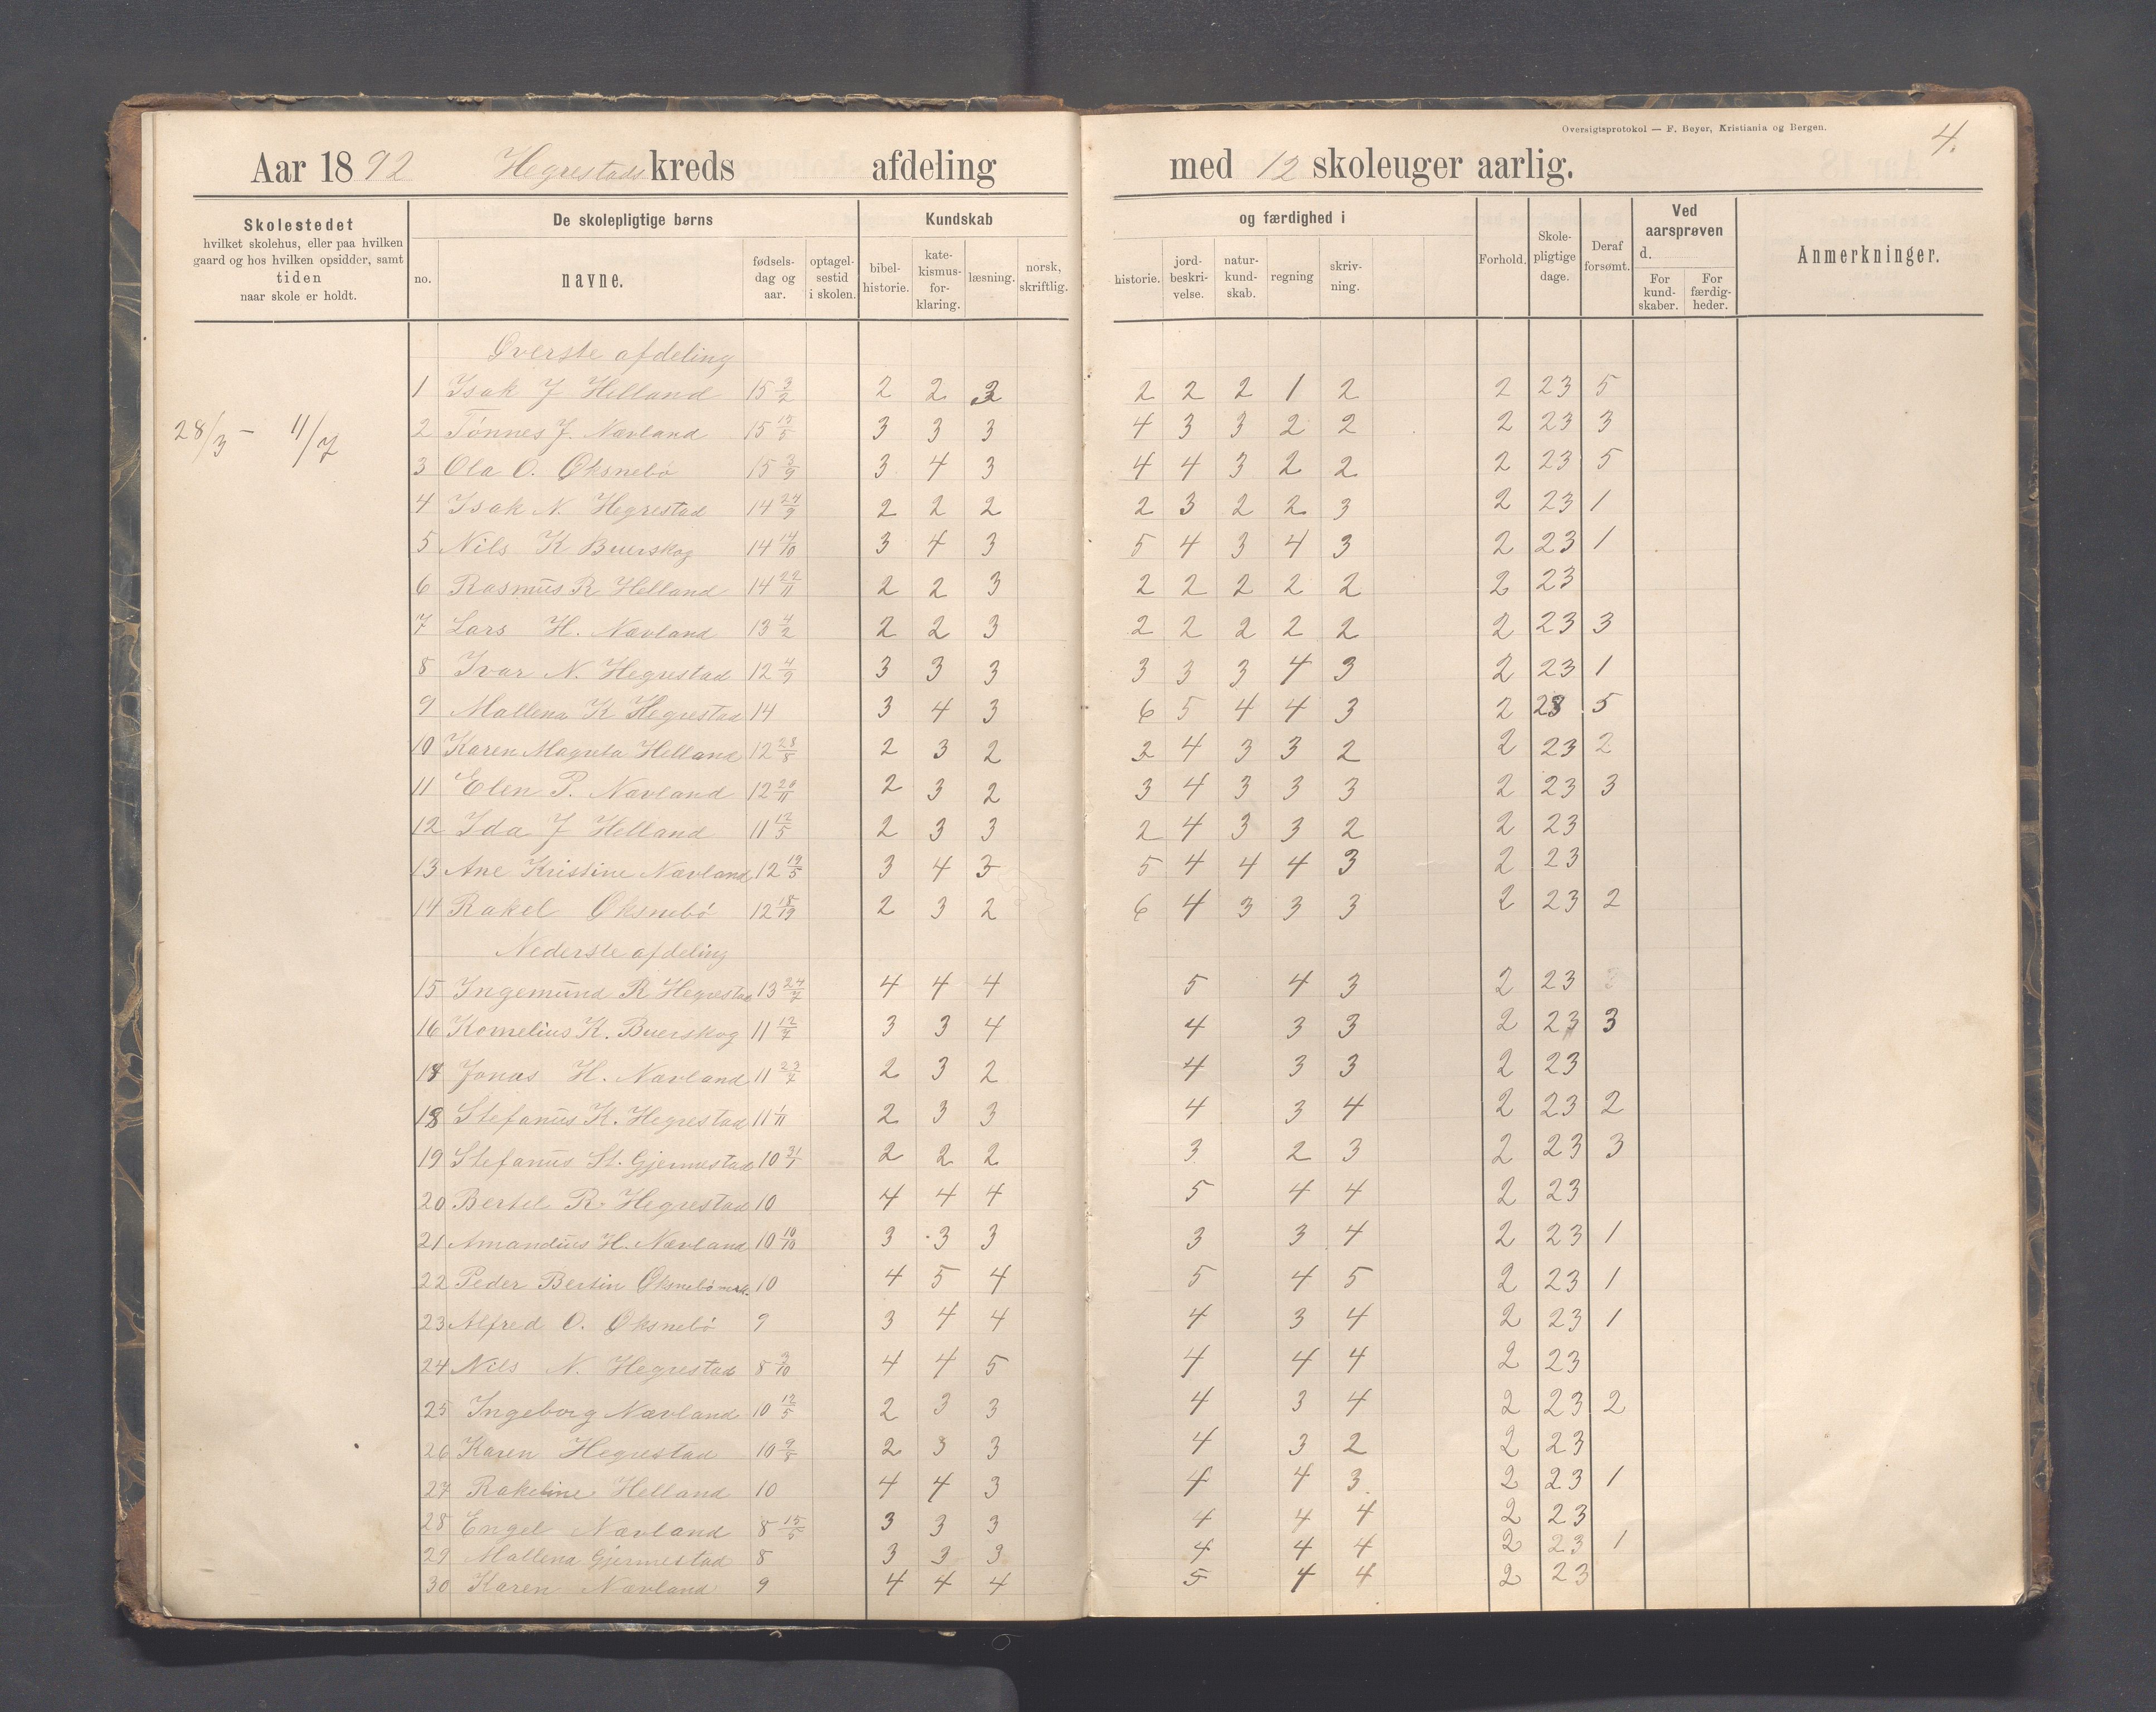 Oversigtsprotokol — F. Beyer, Kristiania og Bergen.
4.
Aar 1892 Hegrestads kreds afdeling med 12 skoleuger aarlig.
Skolestedet hvilket skolehus, eller paa hvilken gaard og hos hvilken opsidder, samt tiden naar skole er holdt.
De skolepligtige børns
no. navne. fødsels-dag og aar. optagel-sestid i skolen.
Kundskab og færdighed i
bibel-historie. kate-kismus-for-klaring. læsning. norsk, skriftlig. historie. jord-beskri-velse. natur-kund-skab. regning skriv-ning.
Forhold. Skole-pligtige dage. Deraf forsømt.
Ved aarsprøven d.
For kund-skaber. For færdig-heder.
Anmerkninger.
28/3 – 11/7
Øverste afdeling
1 Isak J Helland 15 3/2 2 2 2 2 2 2 1 2 2 23 5
2 Tønnes J. Nævland 15 15/5 3 3 3 4 3 3 2 2 2 23 3
3 Ola O. Øksnebø 15 3/9 3 4 3 4 4 3 2 2 2 23 5
4 Isak N. Hegrestad 14 24/9 2 2 2 2 3 2 2 3 2 23 1
5 Nils K Buerskog 14 14/10 3 4 3 5 4 3 4 3 2 23 1
6 Rasmus R Helland 14 22/11 2 2 3 2 2 2 2 2 2 23
7 Lars H. Nævland 13 4/2 2 2 3 2 2 2 2 2 2 23 3
8 Ivar N. Hegrestad 12 4/9 3 3 3 3 3 3 4 3 2 23 1
9 Mallena K Hegrestad 14 3 4 3 6 5 4 4 3 2 23 5
10 Karen Magreta Helland 12 28/8 2 3 2 2 4 3 3 2 2 23 2
11 Elen P. Nævland 12 20/11 2 3 2 3 4 3 3 3 2 23 3
12 Ida J Helland 11 12/5 2 3 3 2 4 3 3 2 2 23
13 Ane Kristine Nævland 12 19/5 3 4 3 5 4 4 4 3 2 23
14 Rakel Øksnebø 12 18/19 2 3 2 6 4 3 3 3 2 23 2
Nederste afdeling
15 Ingemund R Hegrestad 13 24/7 4 4 4 5 4 3 2 23
16 Kornelius K. Buerskog 11 12/7 3 3 4 4 3 3 2 23 3
17 Jonas H. Nævland 11 23/7 2 3 2 4 3 3 2 23
18 Stefanus K. Hegrestad 11 1/11 2 3 3 4 3 4 2 23 2
19 Stefanus St. Gjermestad 10 31/1 2 2 2 3 2 3 2 23 3
20 Bertel R. Hegrestad 10 4 4 4 5 4 4 2 23
21 Amandius H. Nævland 10 10/10 3 3 3 3 3 4 2 23 1
22 Peder Bertin Øksnebømrk. 10 4 5 4 5 4 5 2 23 1
23 Alfred O. Øksnebø 9 3 4 4 4 3 4 2 23 1
24 Nils N. Hegrestad 8 3/10 4 4 5 4 4 4 2 23
25 Ingeborg Nævland 10 12/5 2 3 3 4 3 4 2 23 2
26 Karen Hegrestad 10 9/8 2 3 3 4 3 2 2 23
27 Rakeline Helland 10 4 4 3 4 4 3. 2 23 1
28 Engel Nævland 8 15/5 3 3 3 4 4 4 2 23
29 Mallena Gjermestad 8 3 3 3 4 4 4 2 23 1
30 Karen Nævland 9 4 4 4 5 4 4 2 23